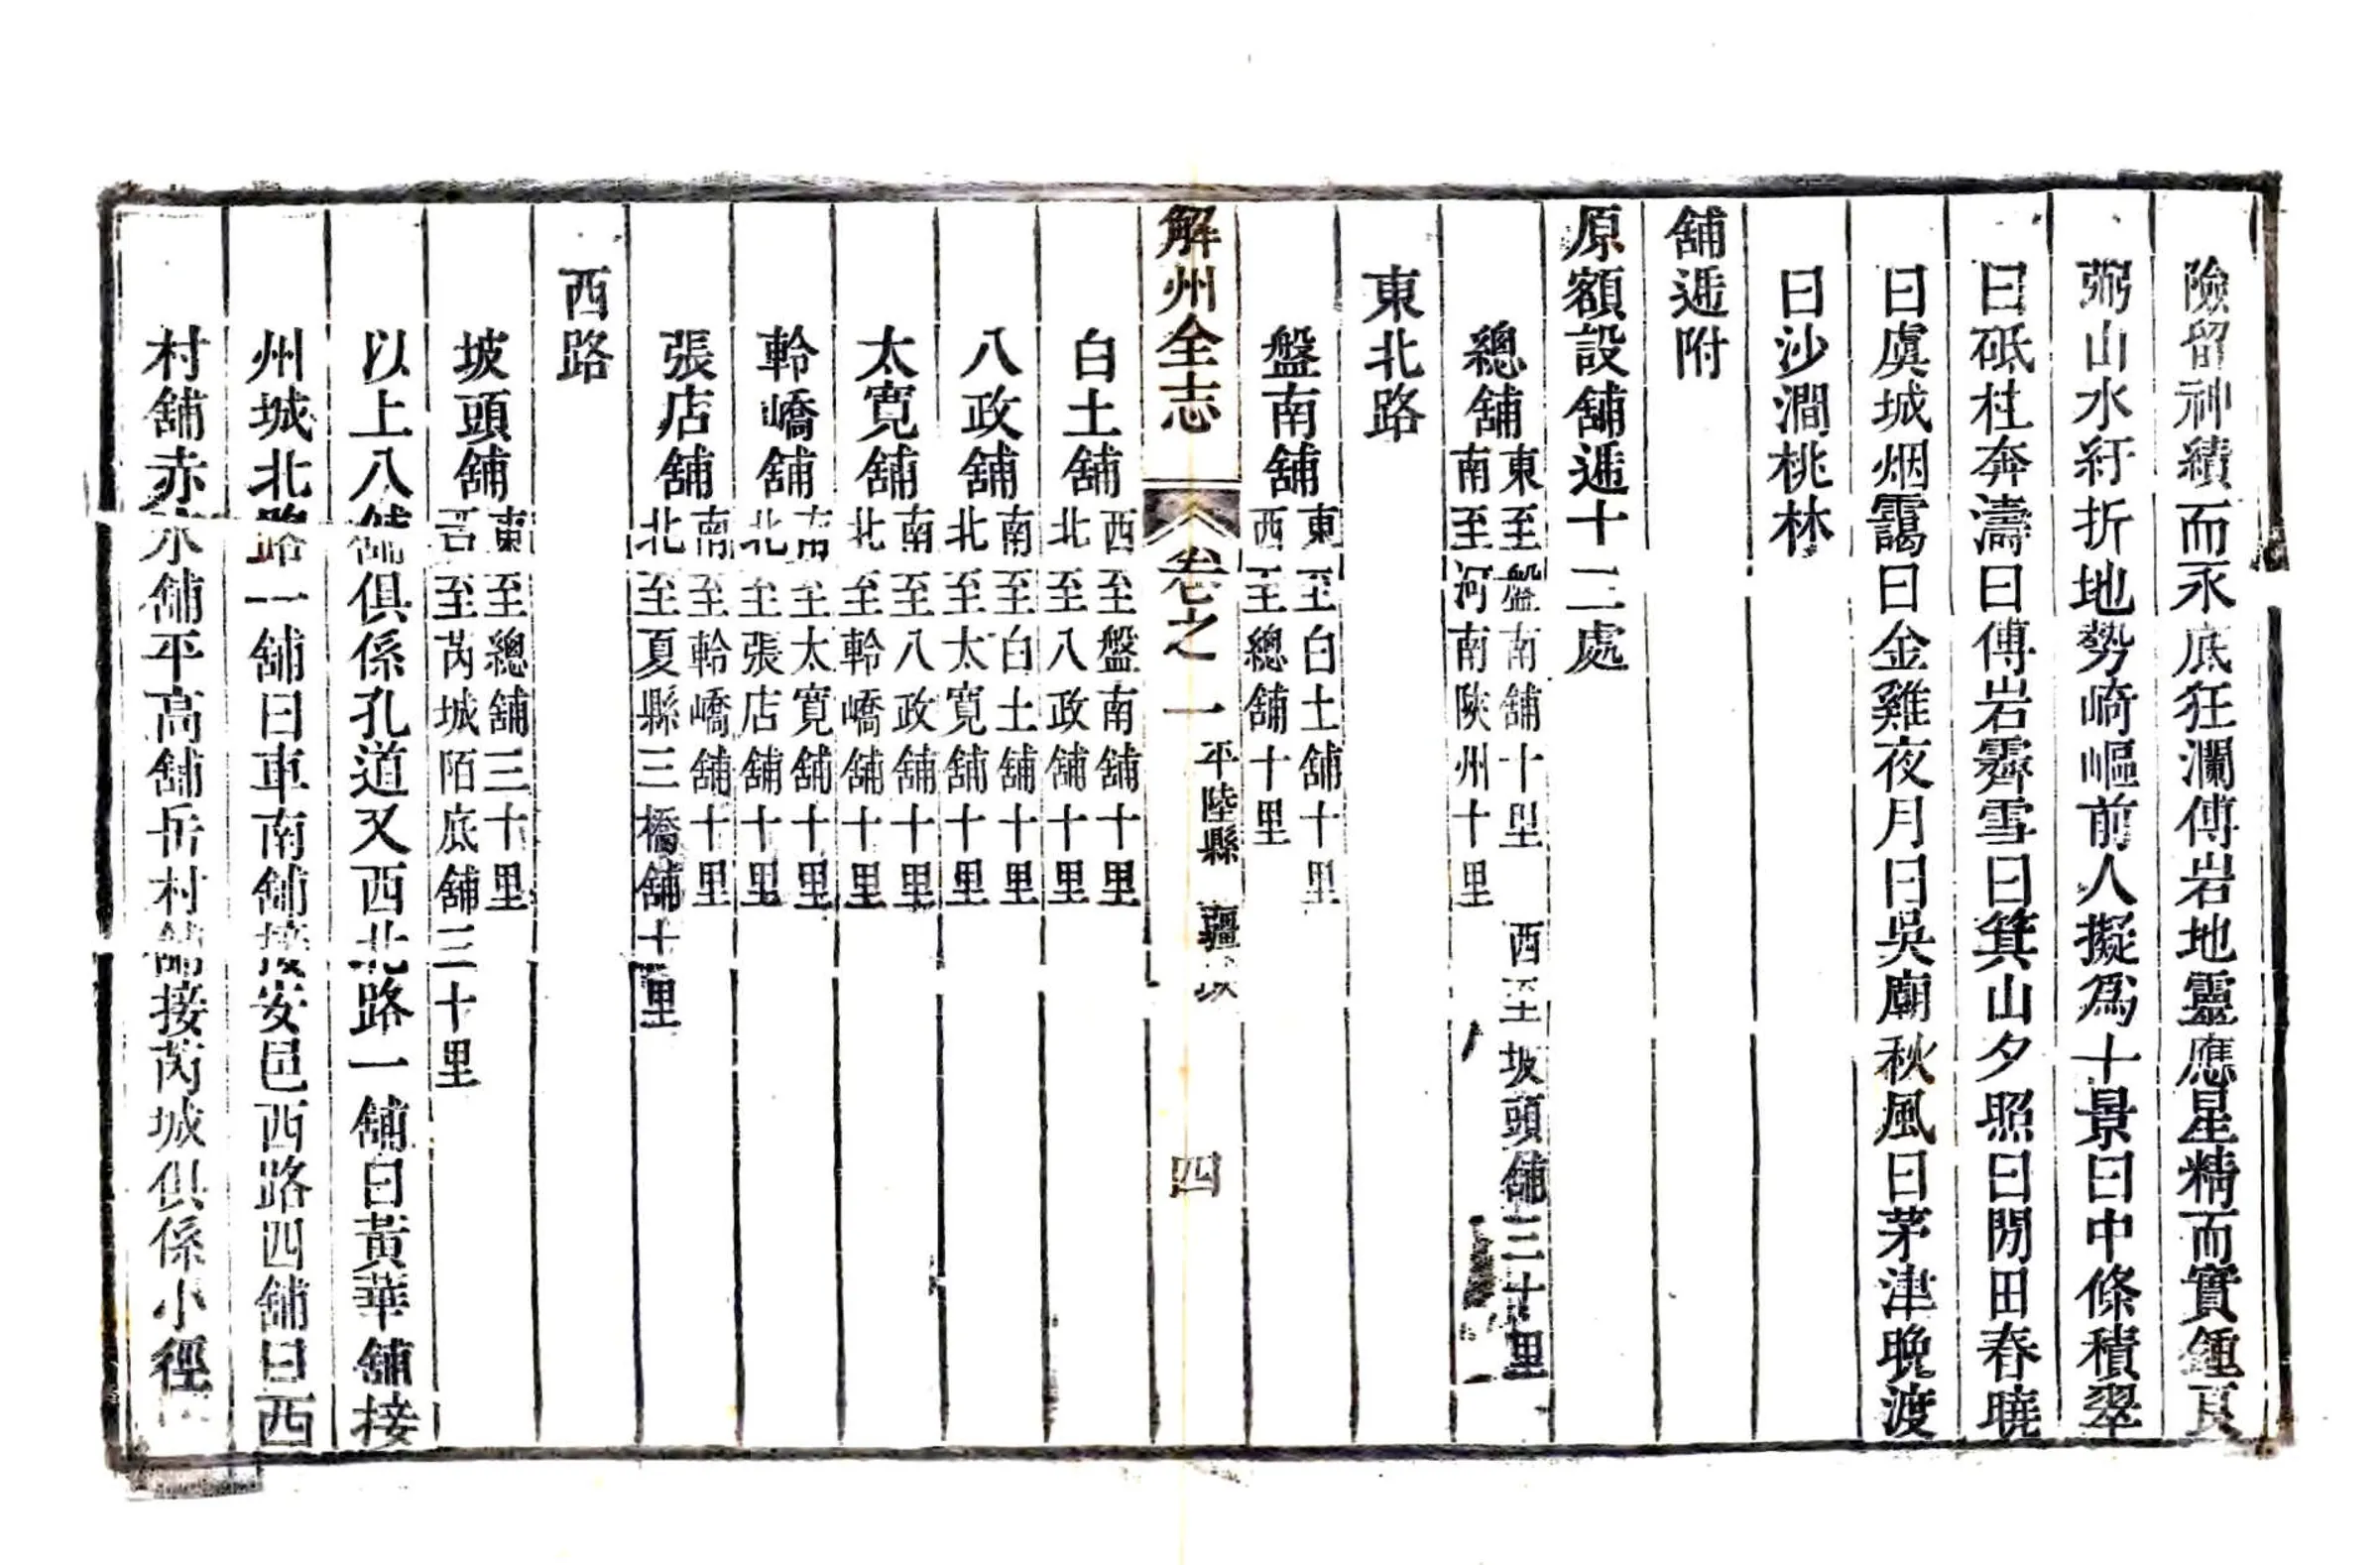 險留神績而永底狂瀾傅岩地靈應星精而實鍾
弼山水紆折地勢崎嶇前人擬爲十景曰中條積翠
曰砥柱奔濤曰傅岩霽雪曰箕山夕照曰閒田春曉
曰虞城烟靄曰金雞夜月曰吳廟秋風曰茅津晚渡
曰沙澗桃林
舖遞附
原額設舖遞十二處
總舖東至盤南舖十里 西至坡頭舖三十里
南至河南陝州十里
東北路
盤南舖東至白土舖十里
西至總舖十里
解州全志 卷之一 平陸縣 疆域 四
白土舖西至盤南舖十里
北至八政舖十里
八政舖南至白土舖十里
北至太寬舖十里
太寬舖南至八政舖十里
北至軨嶠舖十里
軨嶠舖南至太寬舖十里
北至張店舖十里
張店舖南至軨嶠舖十里
北至夏縣三橋舖十里
西路
坡頭舖東至總舖三十里
至芮城陌底舖三十里
以上八舖俱係孔道又西北路一舖曰黃華舖接
州城北路一舖曰車南舖接安邑西路四舖曰西
村舖赤水舖平高舖岳村舖接芮城俱係小徑